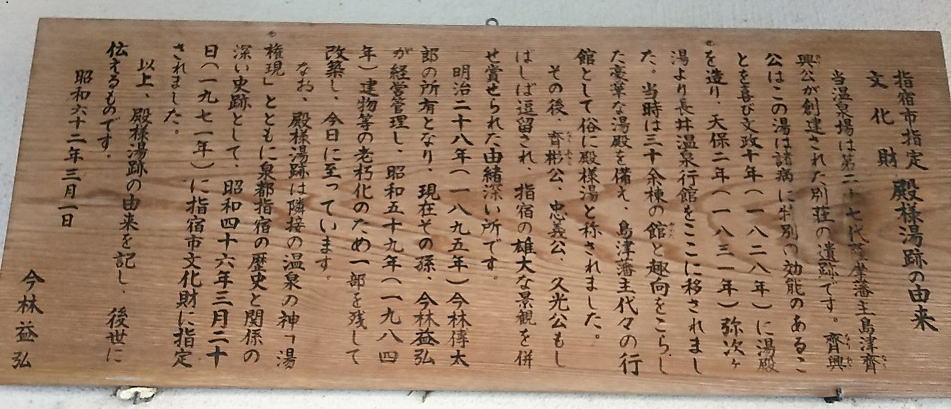 指宿市指定
文化財
殿様湯跡の由来
当温泉場は第二十七代薩摩藩主島津齊
興公が創建された別荘の遺跡です。齊興
公はこの湯は諸病に特別の効能のあるこ
とを喜び文政十年(一八二八年)に湯殿
を造り、天保二年(一八三一年)弥次ヶ
湯より長井温泉行館をここに移されまし
た。当時は三十余棟の館と趣向をこらし
た豪華な湯殿を備え、島津藩主代々の行
館として俗に殿様湯と称されました。
その後、齊彬公、忠義公、久光公もし
ばしば逗留され、指宿の雄大な景観を併
せ賞せられた由緒深い所です。
明治二十八年(一八九五年)今林傳太
郎の所有となり、現在その孫 今林益弘
が経営管理し、昭和五十九年(一九八四
年)建物等の老朽化のため一部を残して
改築し、今日に至っています。
なお、殿様湯跡は隣接の温泉の神「湯
権現」とともに泉都指宿の歴史と関係の
深い史跡として、昭和四十六年三月二十
日(一九七一年)に指宿市文化財に指定
されました。
以上、殿様湯跡の由来を記し、後世に
伝えるものです。
昭和六十二年三月一日
今林益弘